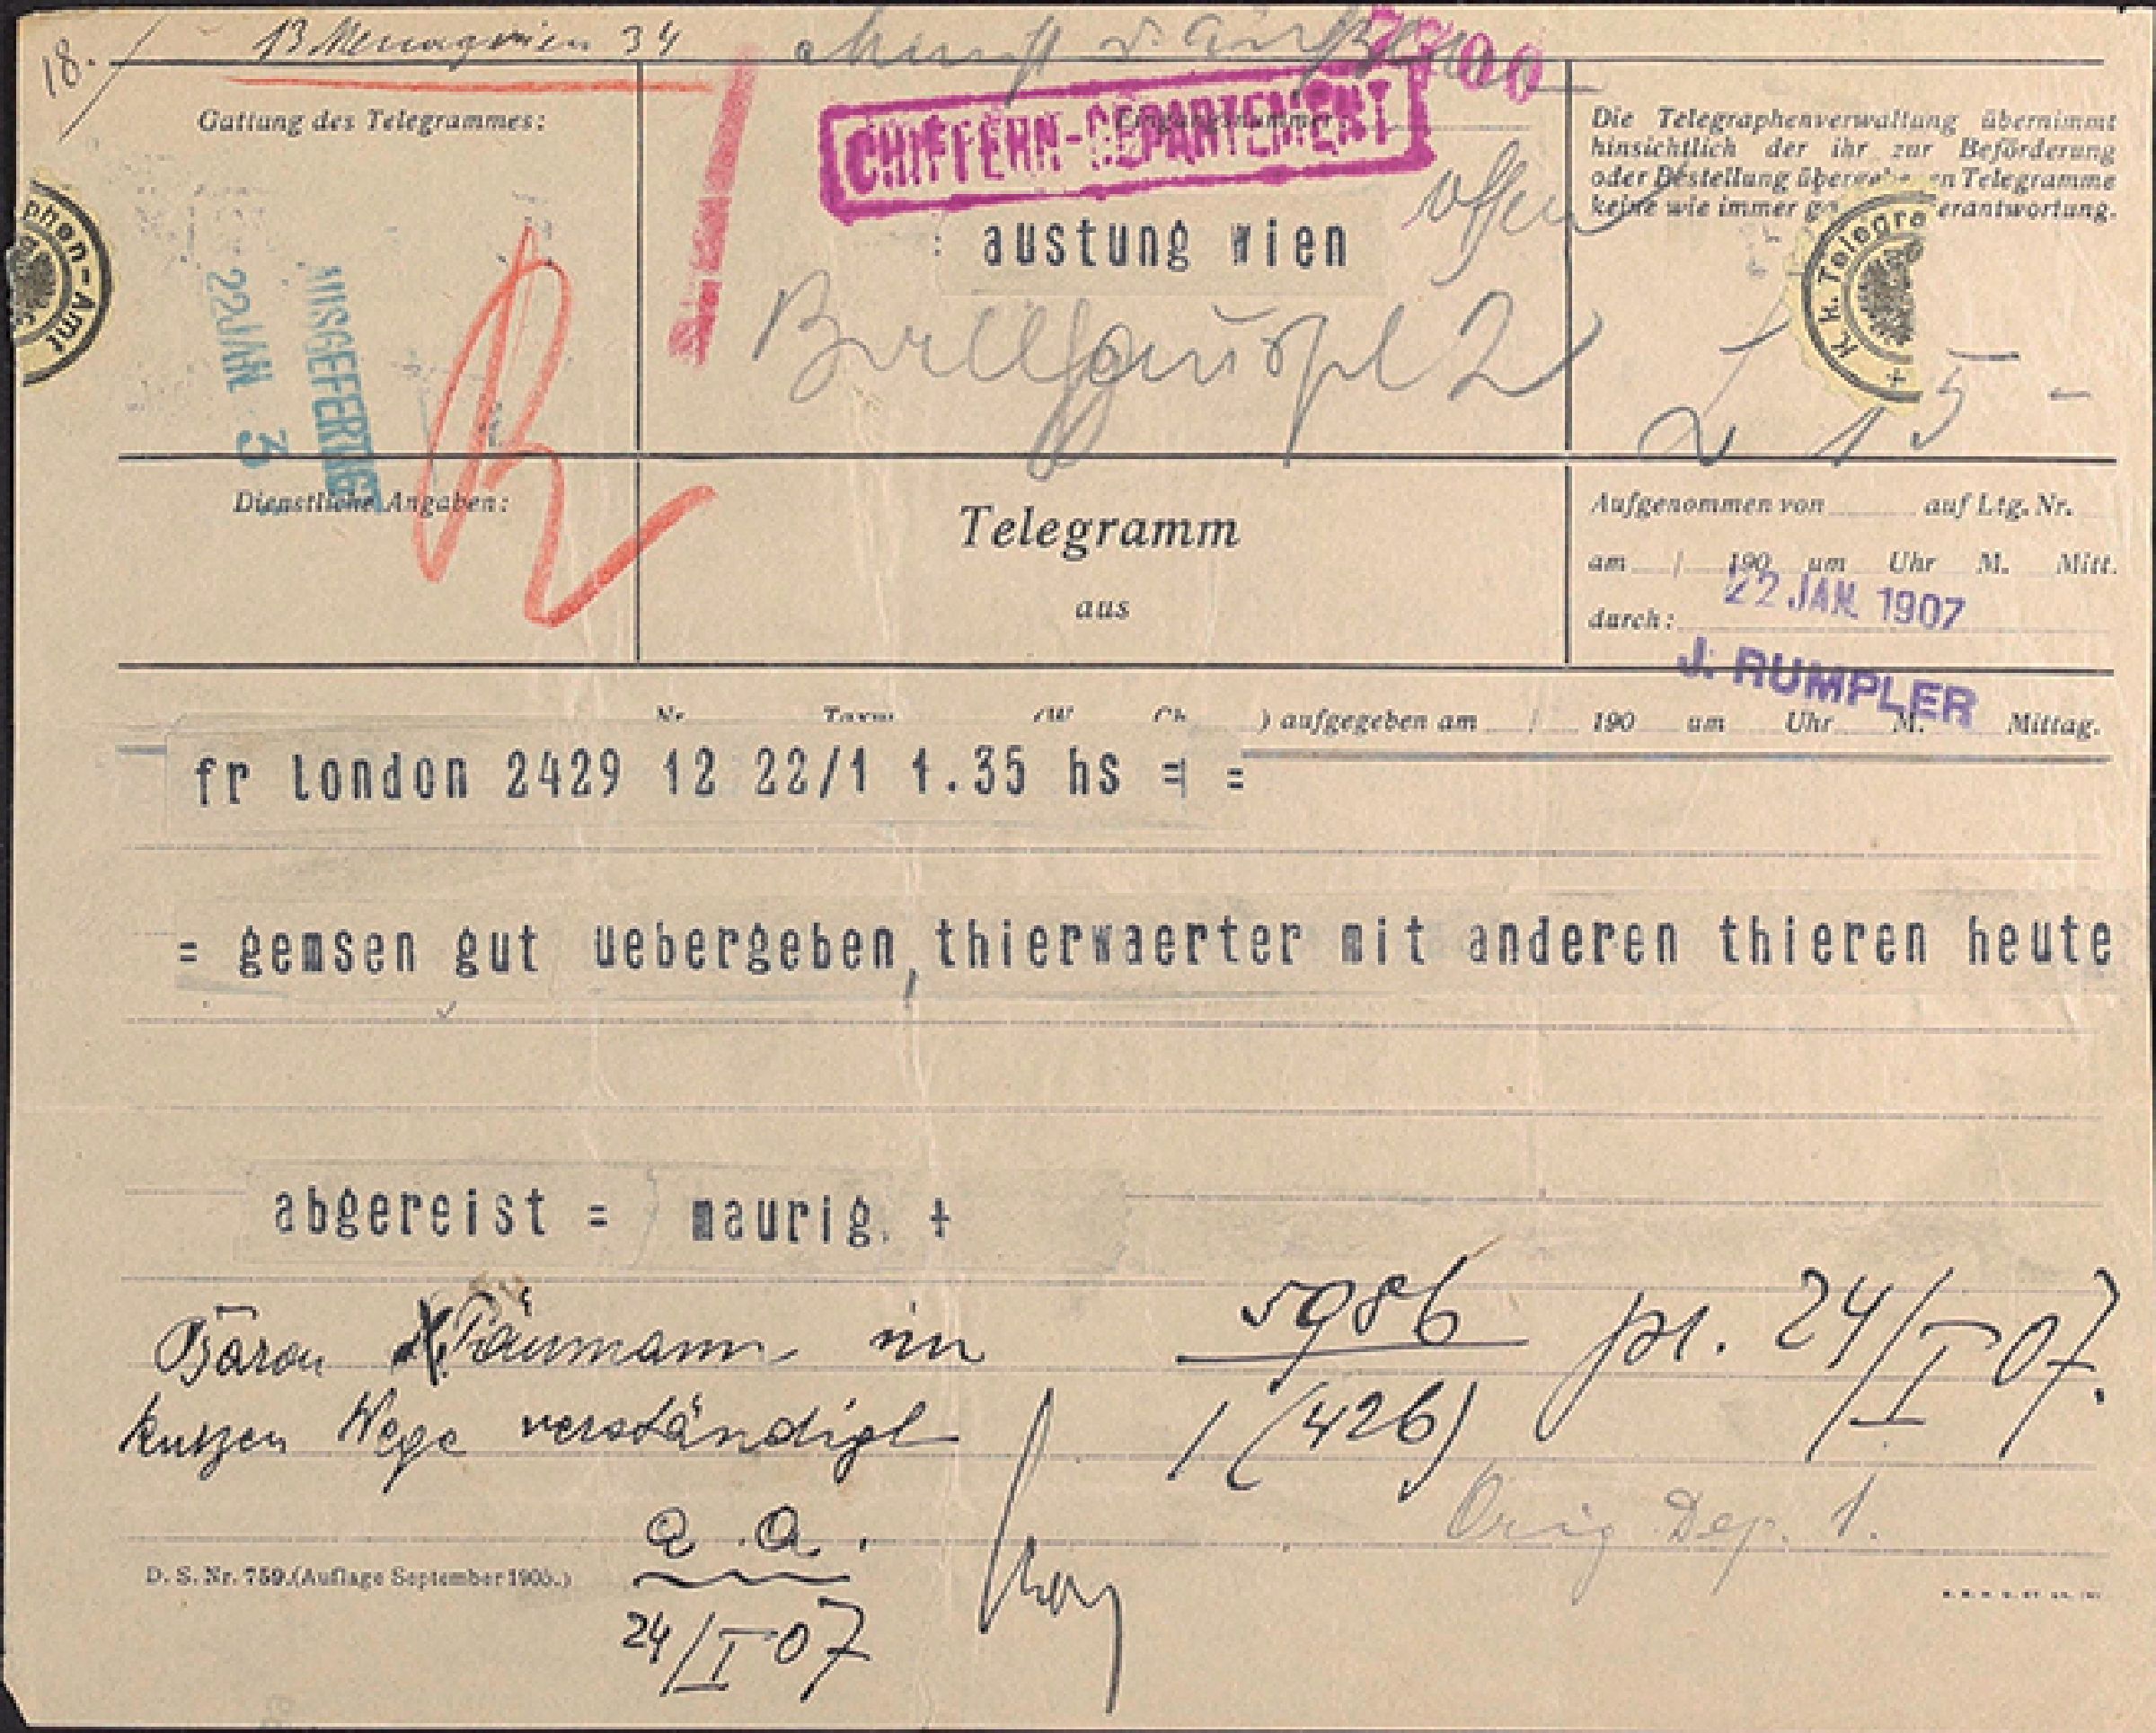 18.
13 Menagerien 34
Gattung des Telegrammes:
CHIFFERN-DEPARTEMENT
Eingangsnummer
offen
Die Telegraphenverwaltung übernimmt
hinsichtlich der ihr zur Beförderung
oder Bestellung Telegramme
keine wie immer
phen-Amt
K. k. Telegra
AUSGEFERTIGT
22 JAN 3
austung wien
Ballhauspl 2
15
Dienstliche Angaben:
Telegramm
aus
Aufgenommen von auf Ltg. Nr.
am / 190 um Uhr M. Mitt.
22 JAN. 1907
durch:
J. RUMPLER
) aufgegeben am / 190 um Uhr M. Mittag.
fr london 2429 12 22/1 1.35 hs = =
= gemsen gut uebergeben, thierwaerter mit anderen thieren heute
abgereist = maurig. +
Baron im
kurzen Wege verständigt
5986 pr. 24/I 07.
1 (426)
a. a.
24/I 07
Orig. Dep. 1.
D. S. Nr. 759. (Auflage September 1905.)